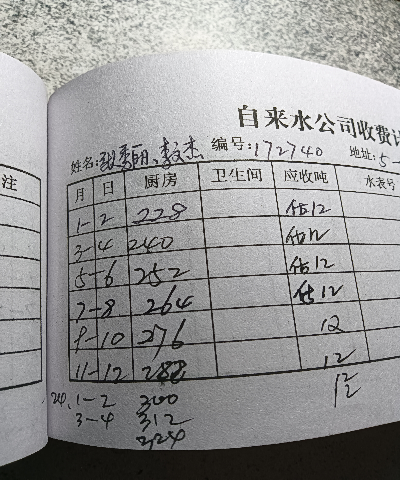 自来水公司收费
姓名: 编号:172740 地址:5
注
月 日 厨房 卫生间 应收吨 水表号
1-2 228 估12
3-4 240 估12
5-6 252 估12
7-8 264 估12
9-10 276 12
11-12 288 12
1-2 300 12
3-4 312 12
324